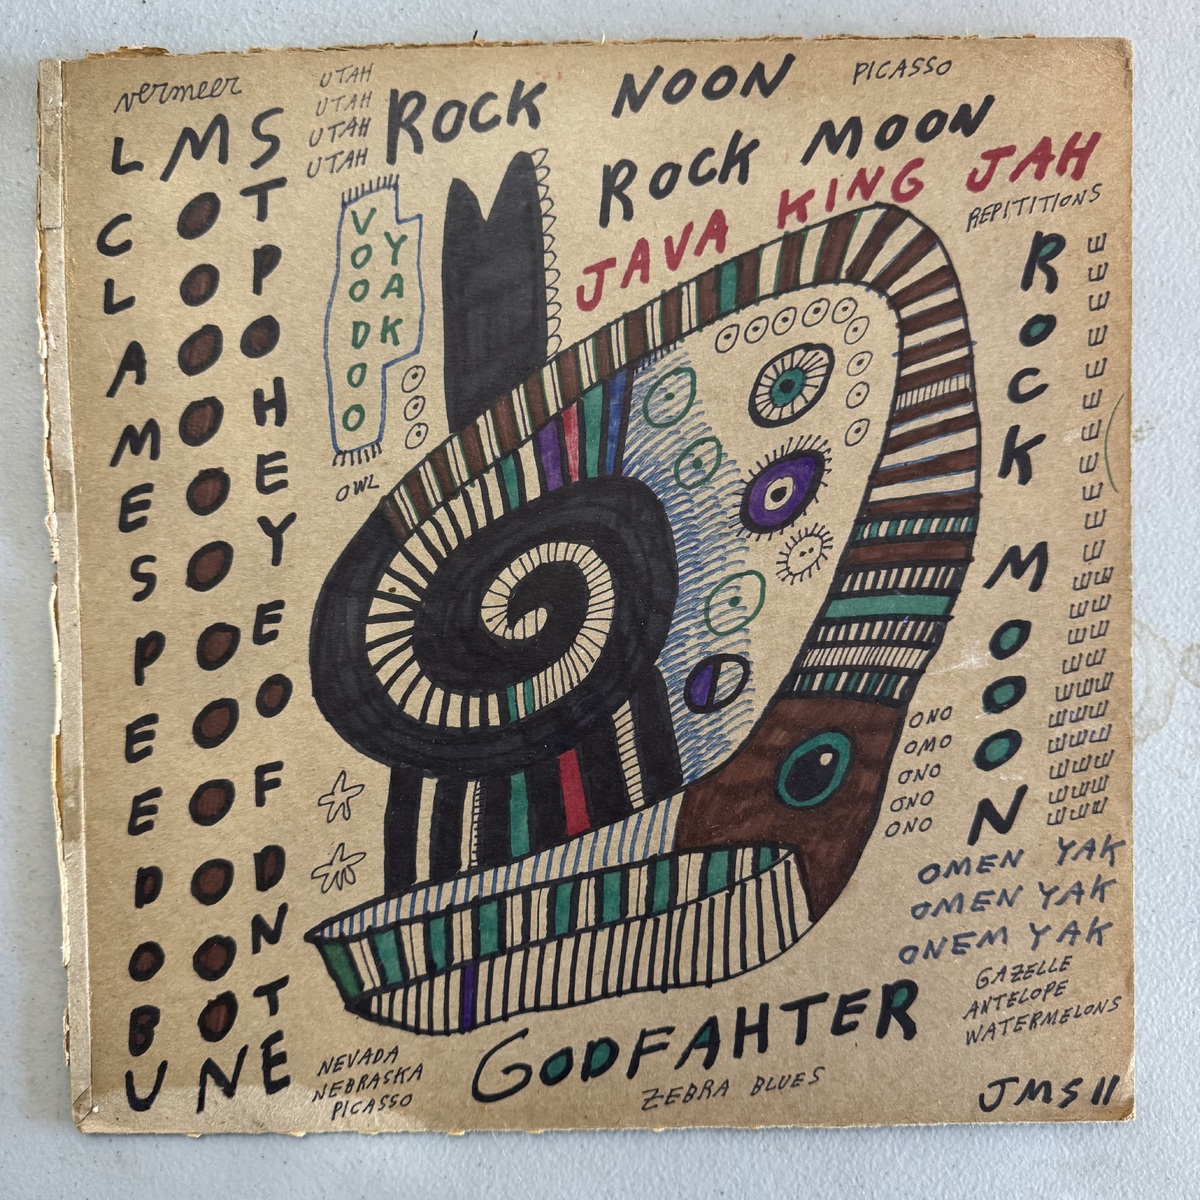 vermeer
UTAH
UTAH
UTAH
UTAH
ROCK NOON
PICASSO
ROCK MOON
JAVA KING JAH
REPITITIONS
LCLAMESPEEDOBU
MOOOOOOOOOOOON
STPOHEYEOFDNTE
VOODOO
YAK
OWL
ROCK MOON
ONO
OMO
ONO
ONO
ONO
OMEN YAK
OMEN YAK
ONEM YAK
GAZELLE
ANTELOPE
WATERMELONS
GODFAHTER
NEVADA
NEBRASKA
PICASSO
ZEBRA BLUES
JMS 11